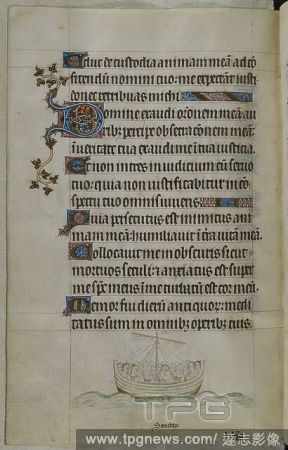 Educ de custodia animam meā ad cō
fitendū nomini tuo: me expectāt iusti
donec retribuas michi
Domine exaudi orōnem meā: au
rib; percipe obsecracōnem meā:
in veritate tua exaudi me in tua iusticia.
Et non intres in iudicium cū servo
tuo: quia non iustificabitur in cō
spectu tuo omnis vivens:
Quia persecutus est inimicus ani
mam meā: humiliavit ī t͛ra vitā meā.
Collocavit me in obscuris sicut
mortuos seculi: ⁊ anxiatus est super
me sp̄c meus ī me turbatū est cor meū.
Memor fui dierū antiquor: medi
tatus sum in omnib; operib; tuis.
TPG
www.tpgnews.com / 達志影像